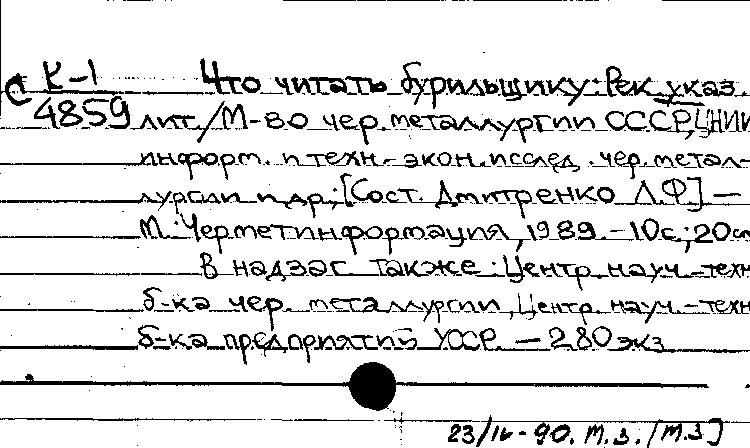 С К-1 Что читать бурильщику: Рек. указ.
4859 лит./М-во чер. металлургии СССР, ЦНИИ
информ. и техн.-экон. исслед. чер. метал-
лургии и др.; [Сост. Дмитренко Л.Ф.] —
М.: Черметинформация, 1989. - 10с.; 20см
В надзаг. также: Центр. науч.-техн
б-ка чер. металлургии, Центр. науч.-техн
б-ка предприятий УССР. — 280 экз
23/IV-90. М.З. [М.З]